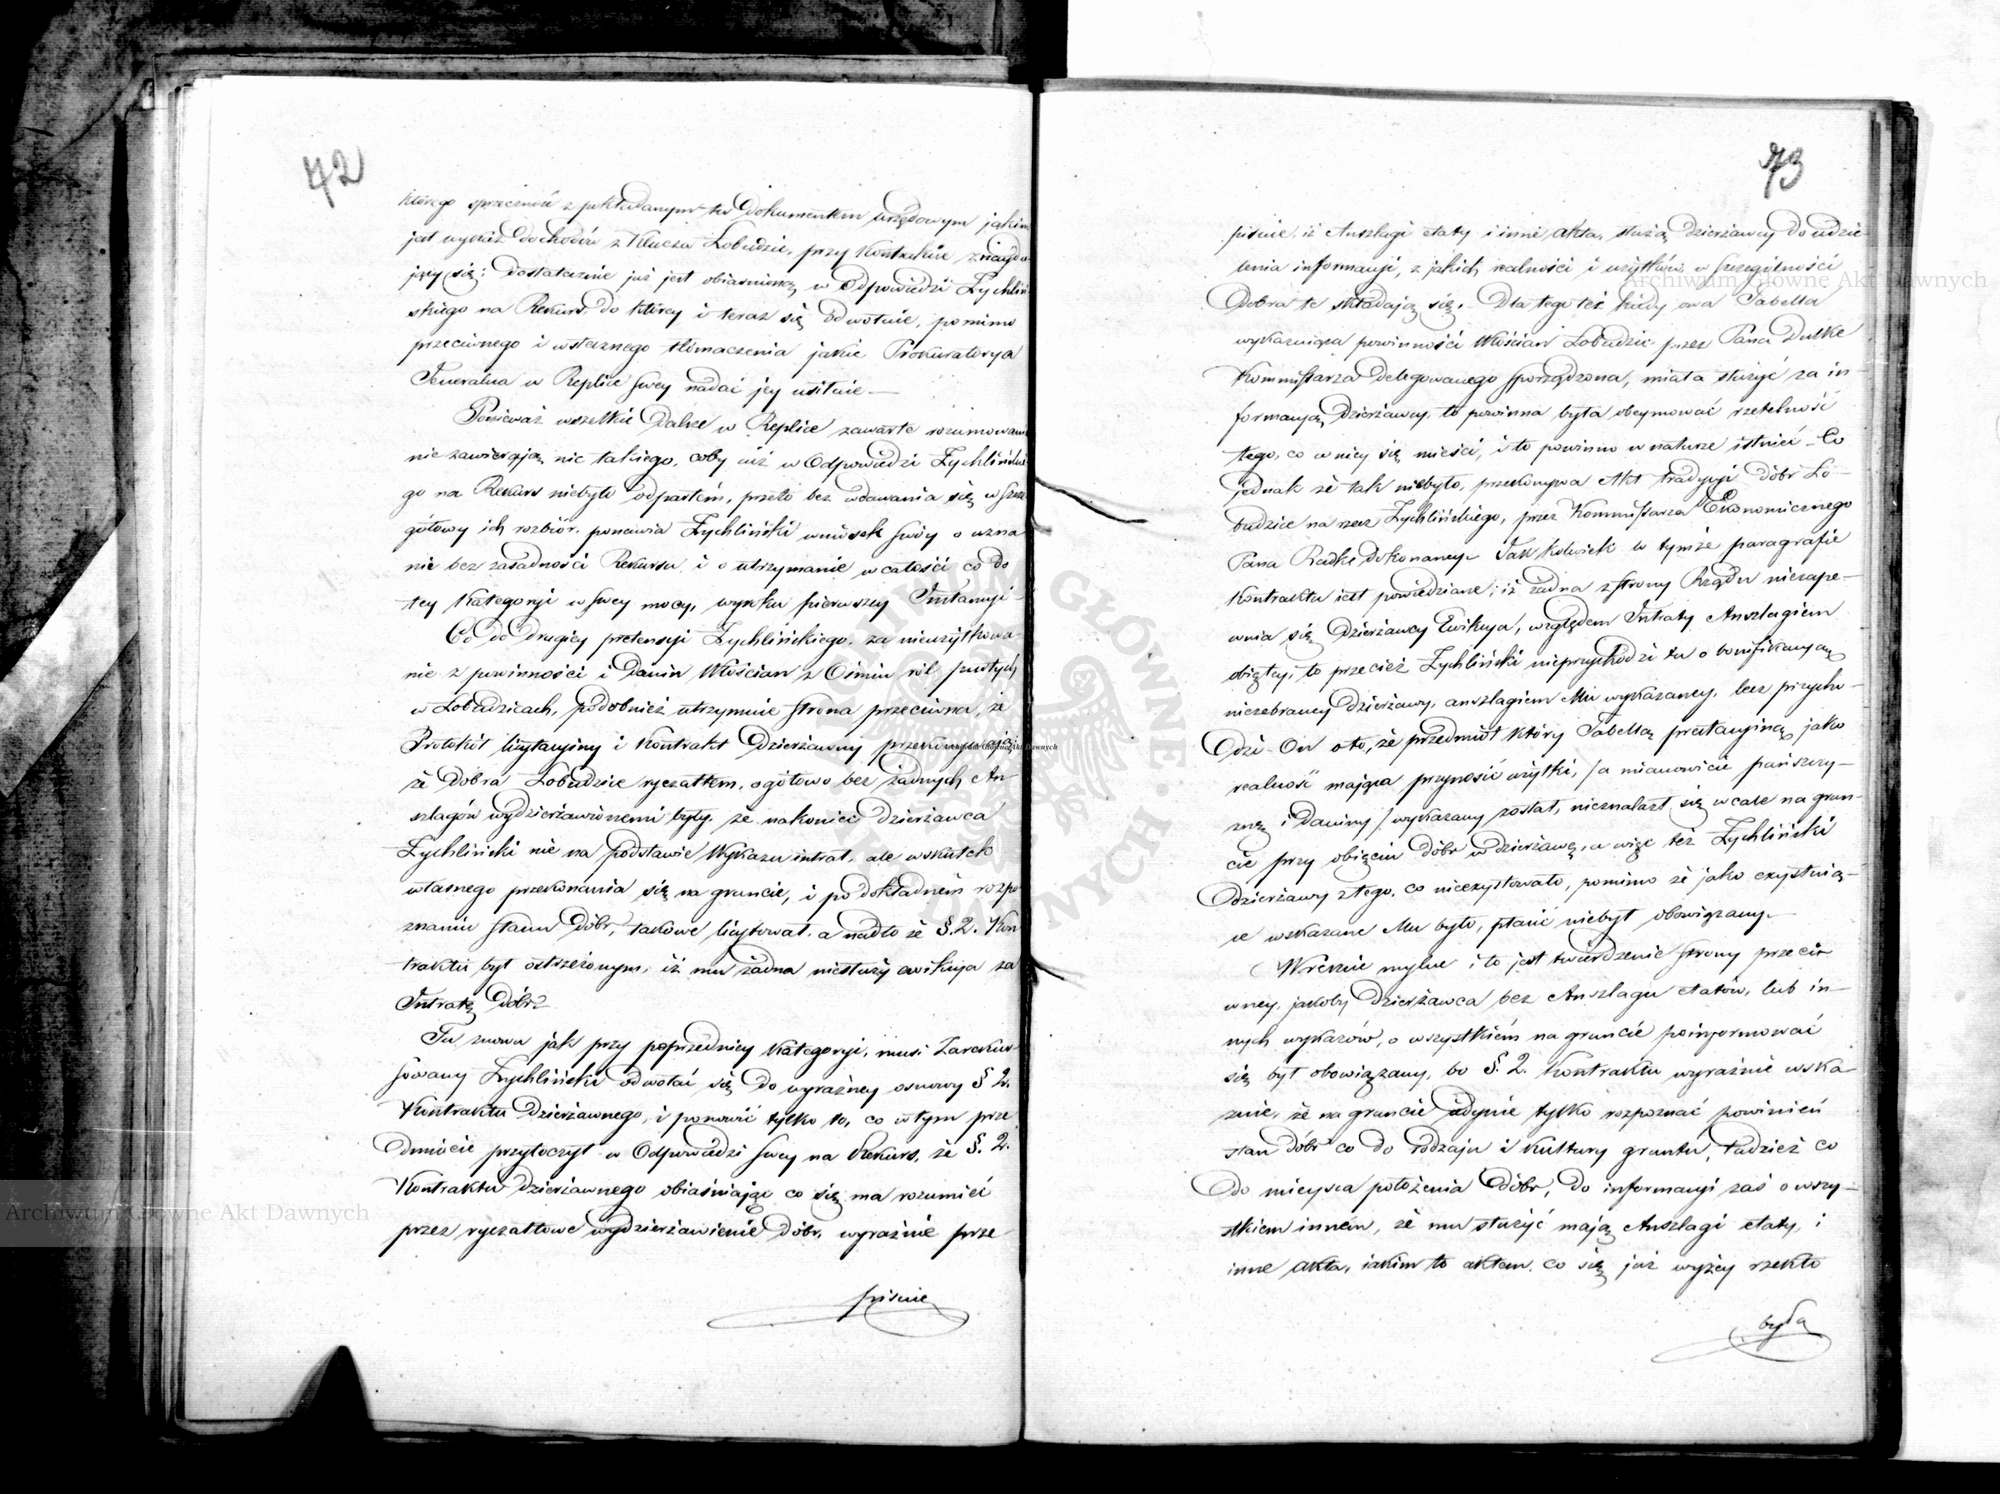 42
którego sprzeczność z pokładanym tu Dokumentem urzędowym jakim
jest wykaz dochodów z Klucza Łobudzic, przy Kontrakcie znaydu
jący się; dostatecznie już jest obiaśnioną w Odpowiedzi Zychliń
skiego na Rekurs, do którey i teraz się odwołuie, pomimo
przeciwnego i wstecznego tłómaczenia jakie Prokuratorya
Jeneralna w Replice swey nadać jey usiłuie.—
Ponieważ wszelkie dalsze w Replice zawarte rozumowania
nie zawierają nic takiego, coby już w Odpowiedzi Zychlińskie
go na Rekurs niebyło odpartem, przeto bez wdawania się w szcze
gółowy ich rozbiór, ponawia Zychliński wniosek swóy o uzna
nie bez zasadności Rekursu, i o utrzymanie w całości co do
tey Kategoryi w swey mocy, wyroku pierwszey Instancyi
Co do drugiey pretensyi Zychlińskiego, za nieużytkowa
nie z powinności i Danin Włościan z Ośmiu ról pustych
w Łobudzicach, podobnież utrzymuie strona przeciwna, że
Protokół licytacyiny i Kontrakt Dzierżawny przekonywają
że Dobra Łobudzice ryczałtem, ogółowo bez żadnych An-
szlagów wydzierżawionemi były, że nakoniec Dzierżawca
Zychliński nie na podstawie Wykazu intrat, ale w skutek
własnego przekonania się na gruncie, i po dokładném rozpo
znaniu stanu Dóbr, takowe licytował, a nadto że §. 2. Kon
traktu był ostrzeżonym, iż mu żadna niesłuży ewikcya za
Intratę Dóbr.
Tu znowu jak przy poprzedniey Kategoryi, musi Zarekur-
sowany Zychliński odwołać się do wyraźney osnowy § 2.
Kontraktu Dzierżawnego, i ponowić tylko to, co w tym prze
dmiocie przytoczył w Odpowiedzi swey na Rekurs, że §. 2.
Kontraktu dzierżawnego obiaśniając co się ma rozumieć
przez ryczałtowe wydzierżawienie Dóbr, wyraźnie prze-
pisuie
73
pisuie, iż Anszlagi etaty i inne Akta, służą Dzierżawcy do udzie
lenia informacyi, z jakich realności i użytków w szczególności
Dobra te składają się. Dla tego też kiedy owa Tabella
wykazuiąca powinności Włościan Łobudzic przez Pana Dutke
Kommissarza Delegowanego sporządzona, miała służyć za in-
formacyą Dzierżawcy, to powinna była obeymować rzetelność
tego, co w niey się mieści, i to powinno w naturze istnieć. Co
jednak że tak niebyło, przekonywa Akt tradycyi dóbr Ło-
budzice na rzecz Zychlińskiego, przez Kommissarza Ekonomicznego
Pana Radke dokonaney. Jakkolwiek w tymże paragrafie
Kontraktu jest powiedziane; iż żadna z strony Rządu niezape-
wnia się Dzierżawcy Ewikcya, względem Intraty Anszlagiem
obiętey, to przecież Zychliński nieprzychodzi tu o bonifikacyą
niezebraney dzierżawy, anszlagiem Mu wykazaney, lecz przycho-
dzi On oto, że przedmiot który Tabellą prestacyiną jako
realność maiąca przynosić użytki, /a mianowicie pańszczy-
znę i Daniny/ wykazany został, nieznalazł się wcale na grun-
cie przy obięciu dóbr w dzierżawę, a więc też Zychliński
Dzierżawy z tego, co nieexystowało, pomimo że jako exystuią-
ce wskazane Mu było, płacić niebył obowiązany.—
Wręcznie mylne i to jest twierdzenie strony przeci-
wney, jakoby Dzierżawca bez Anszlagu etatów, lub in-
nych wykazów, o wszystkiém na gruncie poinformować
się był obowiązany, bo §. 2. Kontraktu wyraźnie wska-
zuie, że na gruncie jedynie tylko rozpoznać powinien
stan dóbr co do rodzaju i kultury gruntu, tudzież co
do mieysca położenia Dóbr, do informacyi zaś o wszy-
stkiem innem, że mu służyć mają Anszlagi etaty, i
inne Akta, jakim to aktem, co się już wyżey rzekło
była
Archiwum Główne Akt Dawnych
Archiwum Główne Akt Dawnych